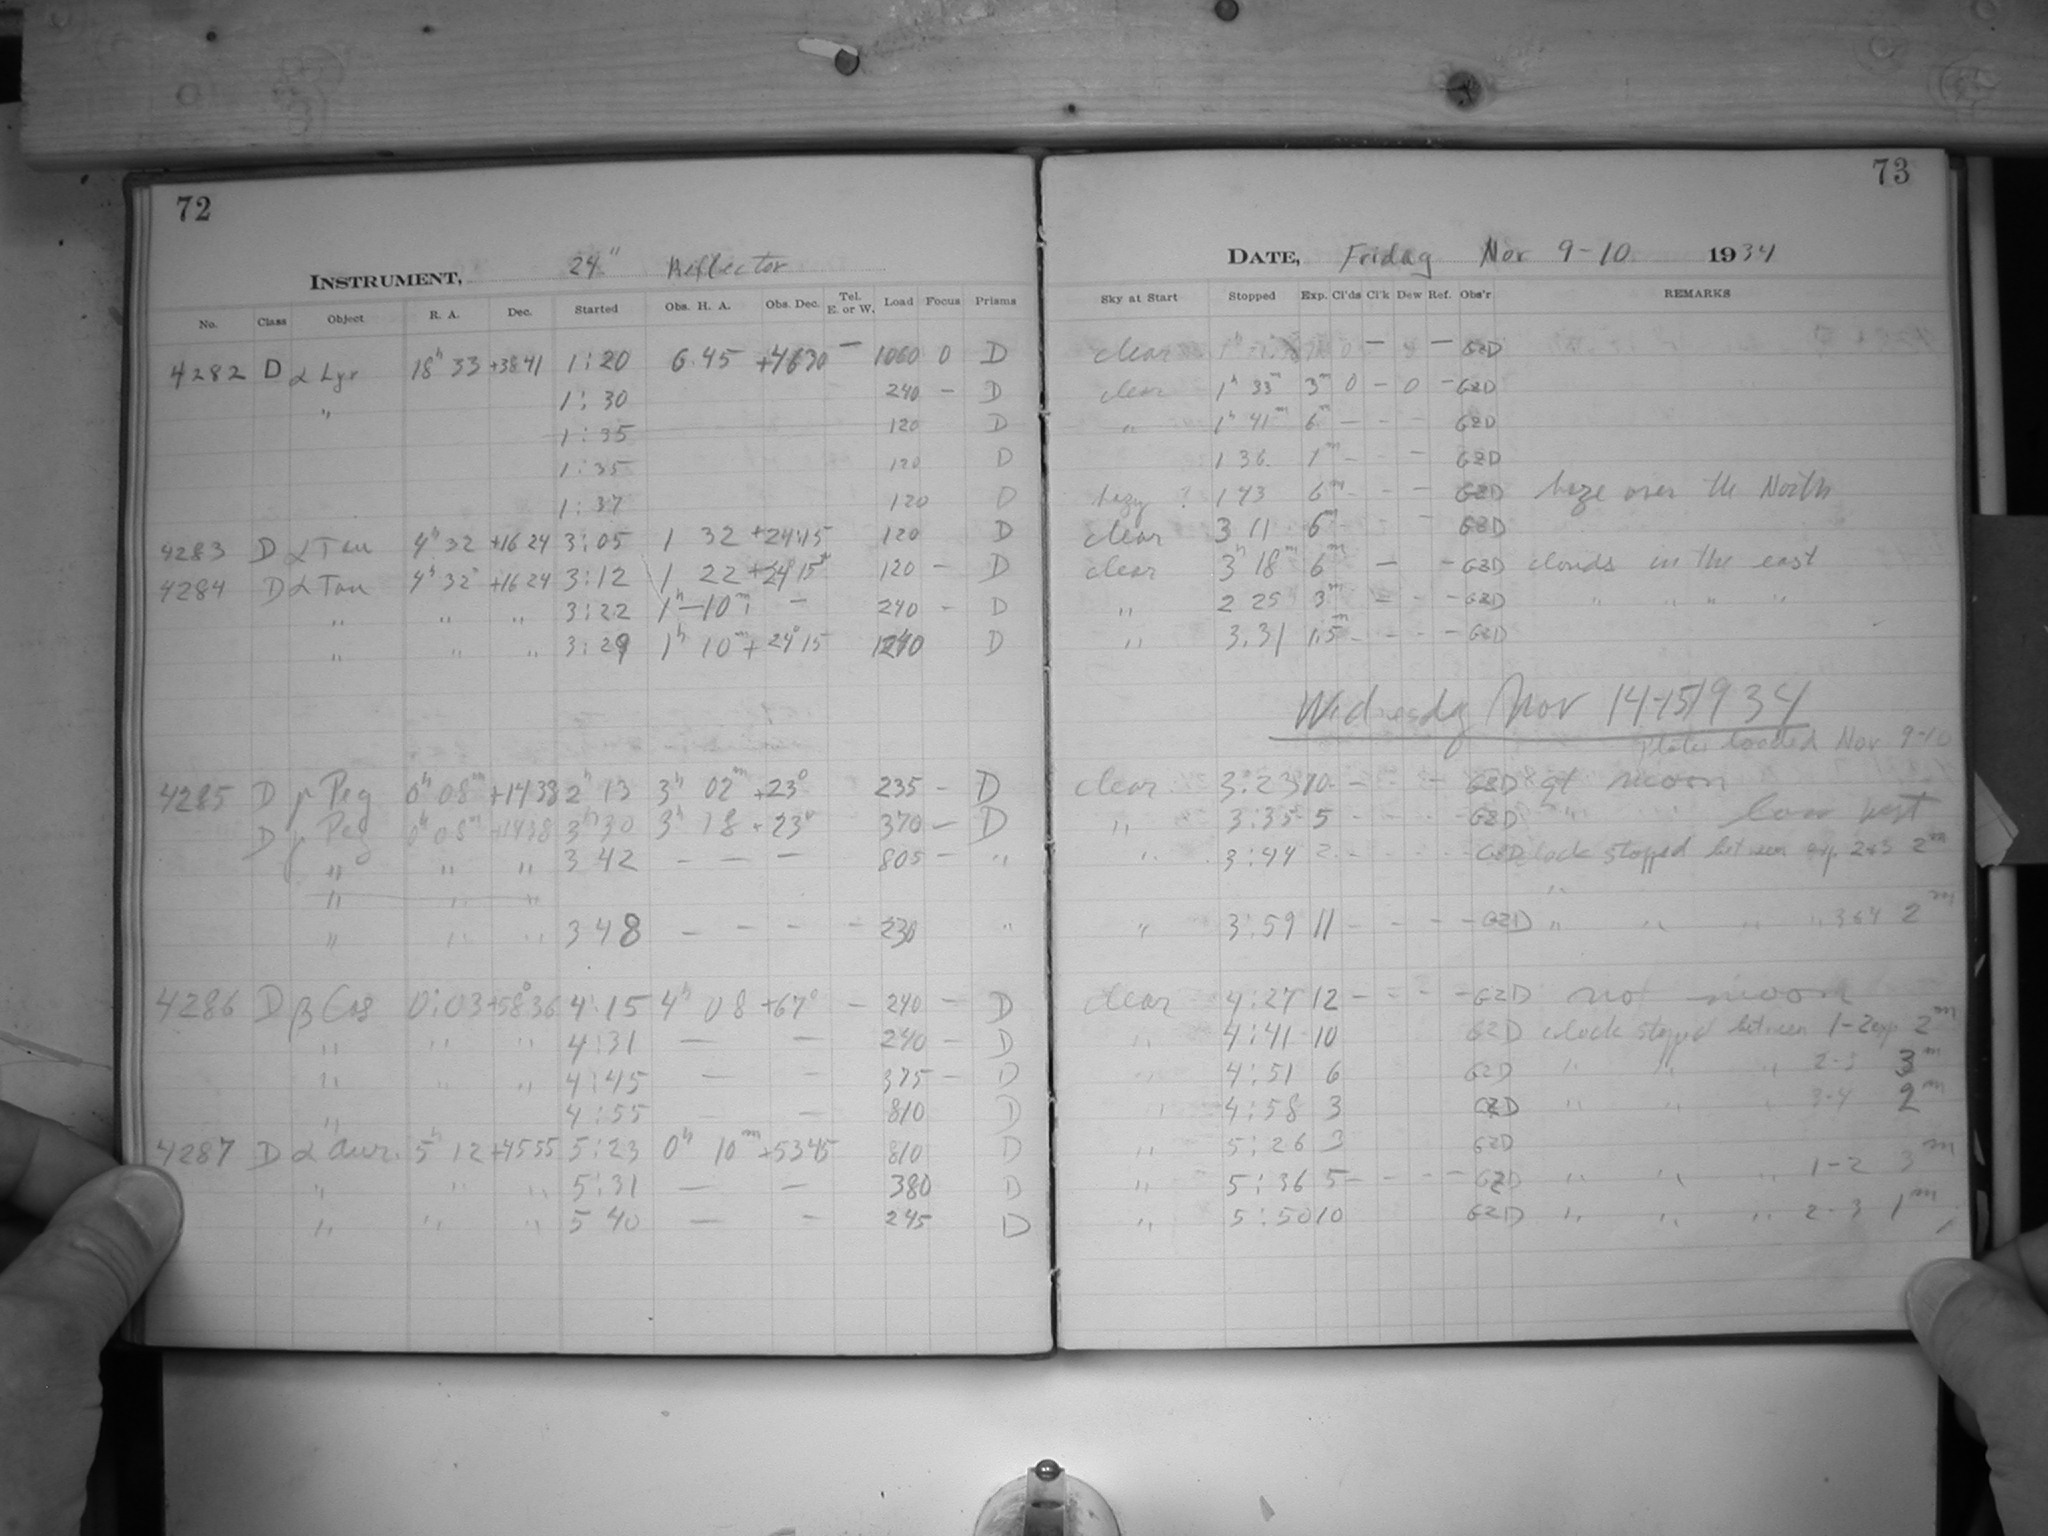 72
INSTRUMENT, 24" Reflector
No. Class Object R. A. Dec. Started Obs. H. A. Obs. Dec. Tel. E. or W. Load Focus Prisms
4282 D α Lyr 18h 33 +38 41 1:20 6.45 +46 30 — 1060 0 D
" 1:30 240 — D
1:35 120 D
1:35 120 D
1:37 120 D
4283 D α Tau 4h 32 +16 24 3:05 1 32 +24:15 120 D
4284 D α Tau 4h 32 +16 24 3:12 1 22 +24 15 120 — D
" " " 3:22 1h — 10m — 240 — D
" " " 3:29 1h 10m + 24° 15 D
4285 D γ Peg 0h 08m +14 38 2h 13 3h 02m +23° 235 — D
D γ Peg 0h 08m +14 38 3h 30 3h 18 +23° 370 — D
" " " 3 42 — — — 805 — "
" " "
" " " 3 48 — — — — 230 "
4286 D β Cas 0:03 +58° 36 4:15 4h 08 +67° — 240 — D
" " " 4:31 — — 240 — D
" " " 4:45 — — 375 — D
" 4:55 — — 810 D
4287 D α Aur. 5h 12 +45 55 5:23 0h 10m +53 45 810 D
" " " 5:31 — — 380 D
" " " 5 40 — — 245 D
73
DATE, Friday Nov 9-10 1934
Sky at Start Stopped Exp. Cl'ds Cl'k Dew Ref. Obs'r REMARKS
clear — — GZD
clear 1h 33m 3m 0 — 0 — GZD
" 1h 41m 6m — — — GZD
1 36 1m — — GZD
hazy ? 1 43 6m — — — GZD haze over the North
clear 3 11 6m — — — GZD
clear 3h 18m 6m — — GZD clouds in the east
" 2 25 3m — — — GZD " " " "
" 3:31 1.5m — — — — GZD
Wednesday Nov 14-15 1934
plates loaded Nov 9-10
clear 3:23 10 — — — GZD moon
" 3:35 5 — — — — GZD " " low west
" 3:44 2 — — — — GZD clock stopped between exp 2&3 2m
"
" 3:59 11 — — — — GZD " " " " 3&4 2m
clear 4:27 12 — — — — GZD no moon
" 4:41 10 GZD clock stopped between 1-2 exp 2m
" 4:51 6 GZD " " " 2-3 3m
" 4:58 3 GZD " " " 3-4 2m
" 5:26 3 GZD
" 5:36 5 — — — — GZD " " " 1-2 3m
" 5:50 10 GZD " " " 2-3 1m